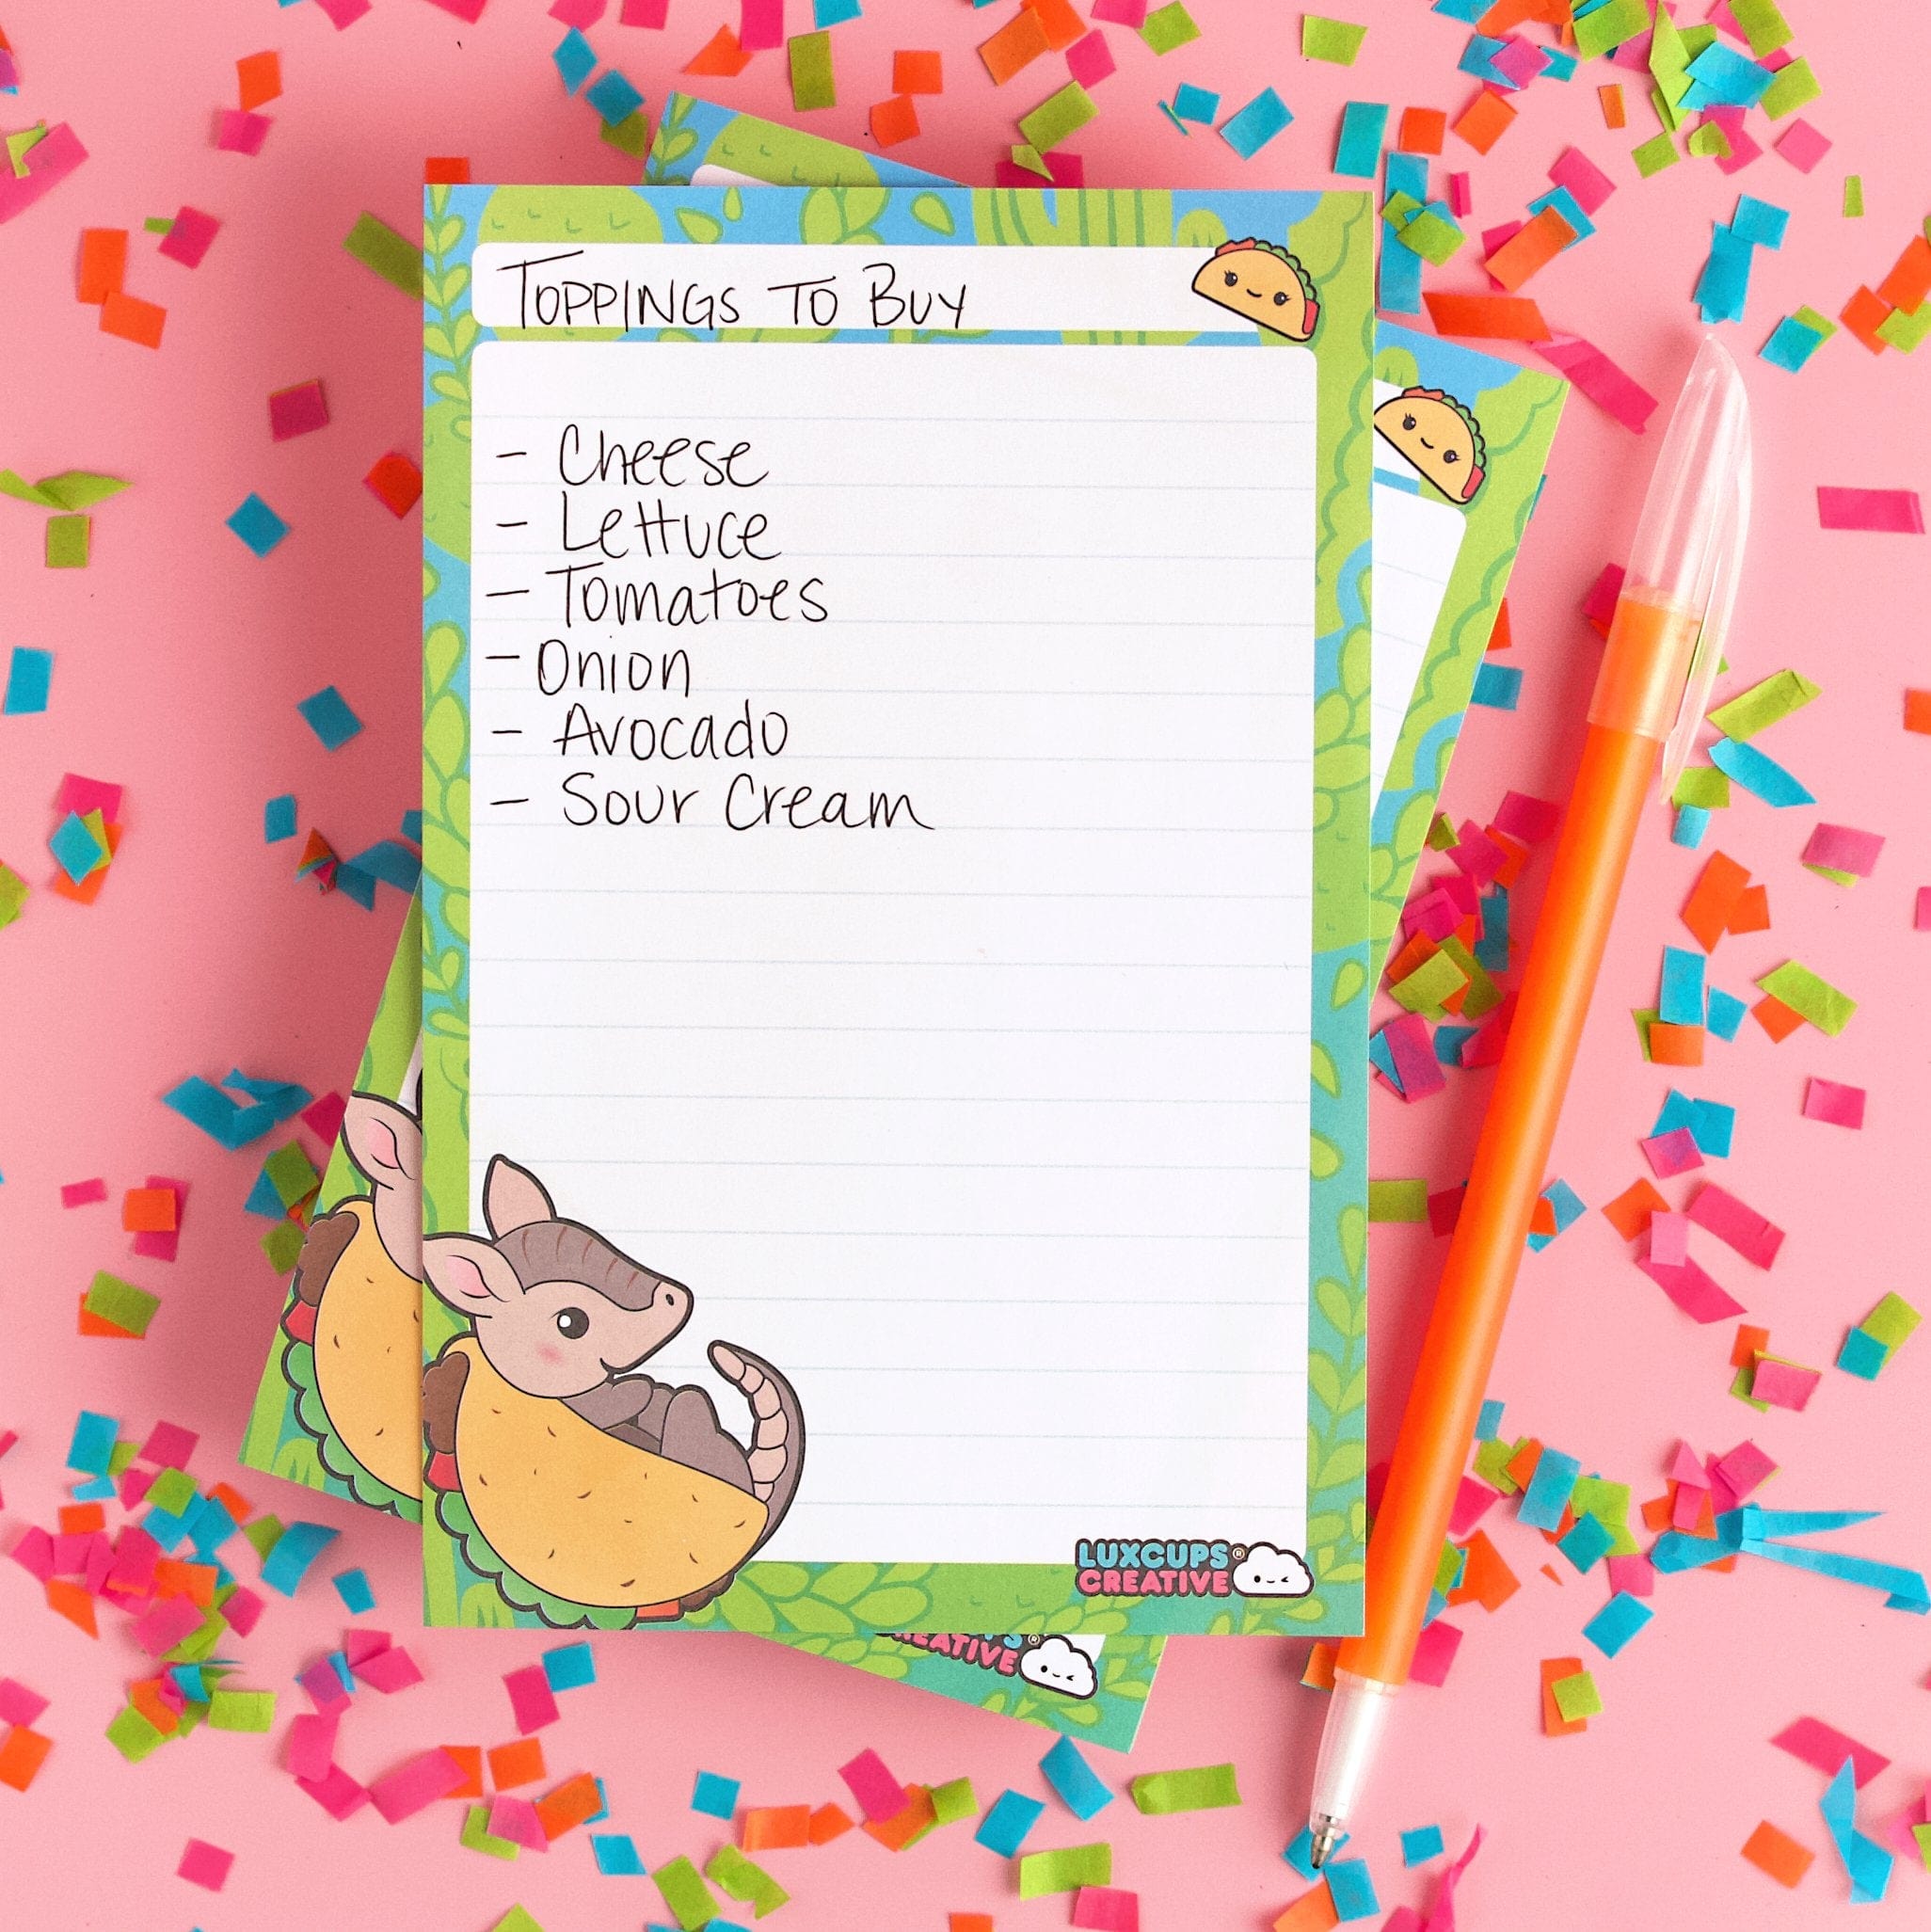 TOPPINGS TO BUY
- Cheese
- Lettuce
- Tomatoes
- Onion
- Avocado
- Sour Cream
LUXCUPS®
CREATIVE
CREATIVE